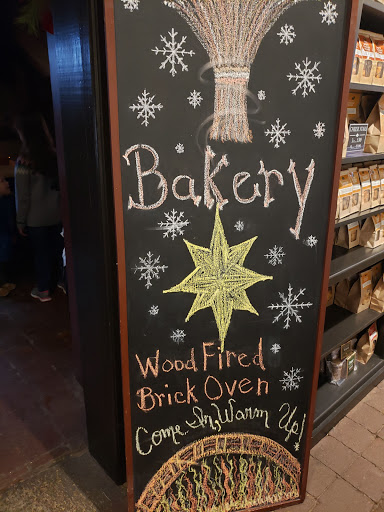 Bakery
Wood Fired
Brick Oven
Come In, Warm Up!